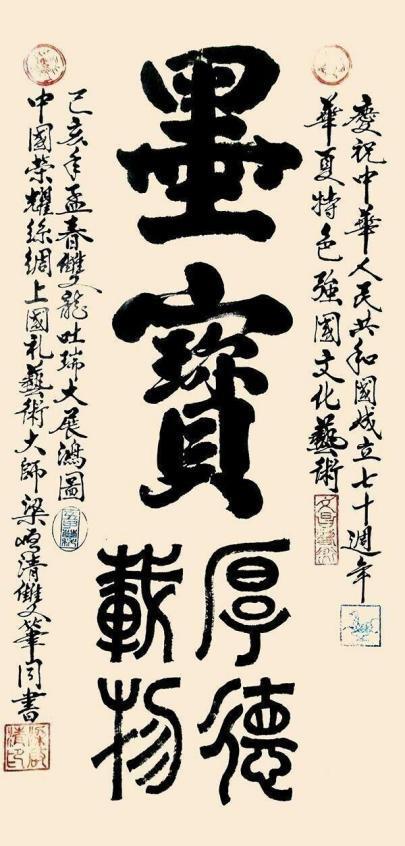 慶祝中華人民共和國成立七十週年
華夏特色強國文化藝術
墨寶
厚德
載物
己亥年孟春雙龍吐瑞大展鴻圖
中國榮耀絲綢上國礼藝術大師梁鳴清雙筆同書